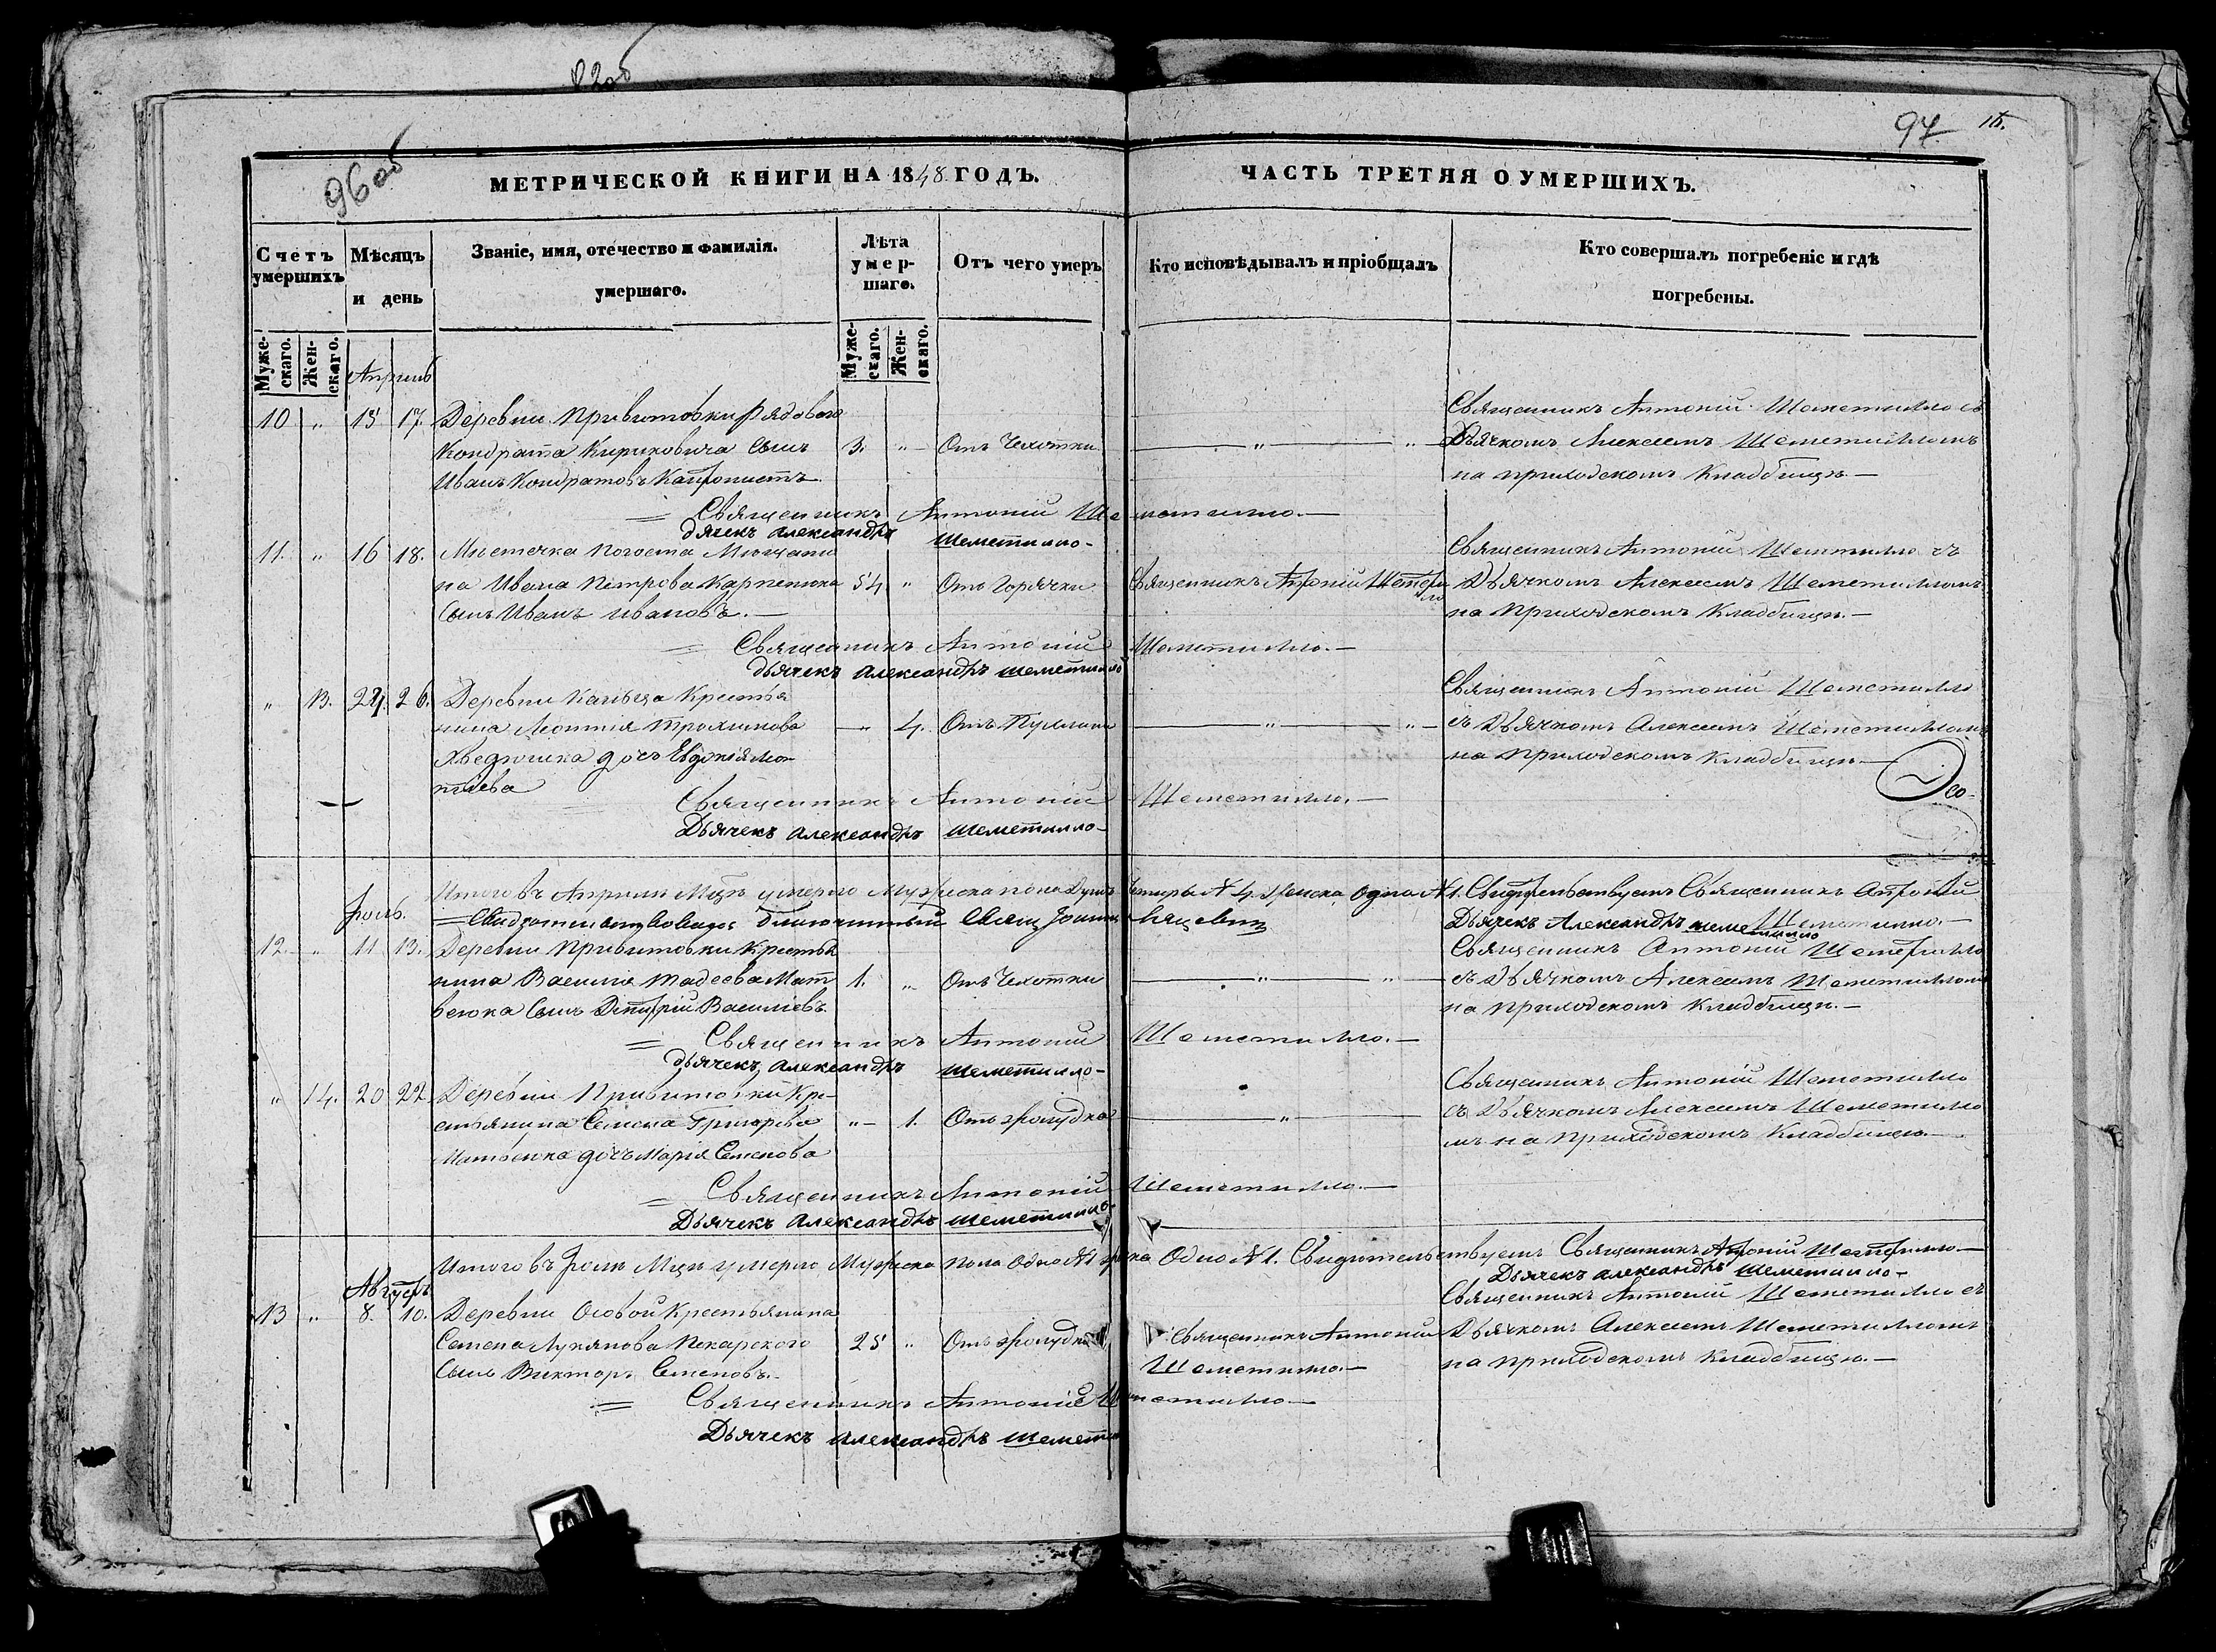 96 об
97
МЕТРИЧЕСКОЙ КНИГИ НА 1848 ГОДЪ.
ЧАСТЬ ТРЕТЯЯ О УМЕРШИХЪ.
Счетъ умершихъ
Мѣсяцъ и день
Званіе, имя, отечество и фамилія.
умершаго.
Лѣта умер-
шаго.
Отъ чего умеръ
Кто исповѣдывалъ и пріобщалъ
Кто совершалъ погребеніе и гдѣ
погребены.
Муже-
скаго.
Жен-
скаго.
Муже-
скаго.
Жен-
скаго.
Апрель
10 " 15 17. Деревни Привитовки Рядового
Кондрата Кириковича сынъ 3. " Отъ Чехотки
Иванъ Кондратовъ
Священникъ Антоній Шеметилло съ
Дьячкомъ Алексеемъ Шеметилломъ
на приходскомъ Кладбищѣ. —
Священникъ Антоній Шеметилло. —
дьячекъ александръ шеметилло-
11. " 16 18. Мѣстечка Погоста Мѣщани
на Ивана Петрова Карпенюка 54 " Отъ Горячки
Сынъ Иванъ Ивановъ. —
Священникъ Антоній
Священникъ Антоній Шеметилло съ
Дьячкомъ Алексеемъ Шеметилломъ
на Приходскомъ Кладбищѣ. —
Священникъ Антоній Шеметилло. —
дьячекъ александръ шеметилло
" 13. 24. 26. Деревни Кальца Крестья
нина Леонтія Трохимова " 4. Отъ
дочь Евдокія Лео
нтіева
Священникъ Антоній Шеметилло
съ Дьячкомъ Алексеемъ Шеметилломъ
на Приходскомъ Кладбищѣ —
Священникъ Антоній Шеметилло. —
Дьячекъ александръ шеметилло-
Итого въ Апрелѣ Мцѣ умерло Мужеска пола Душъ Четыре № 4. Женска Одна № 1. Свидѣтельствуемъ Священникъ Антоній
Шеметилло. —
Дьячекъ Александръ шеметилло
Іюль.
12. " 11 13. Деревни Привитовки Крестья
нина Василія Тадеева Мат 1. " Отъ Чехотки
веюка Сынъ Дмитрій Василіевъ
Священникъ Антоній Шеметилло
съ Дьячкомъ Алексеемъ Шеметилломъ
на приходскомъ Кладбищѣ. —
Священникъ Антоній Шеметилло. —
дьячекъ, александръ шеметилло-
" 14. 20 22 Деревни Привитовки Кре-
стьянина Семена Григорьева " 1. Отъ желудка
Матвеюка дочь Марія Семенова
Священникъ Антоній Шеметилло
съ Дьячкомъ Алексеемъ Шеметилло
мъ на приходскомъ Кладбищѣ. —
Священникъ Антоній Шеметилло. —
Дьячекъ александръ шеметилло-
Итого въ Іюлѣ Мцѣ умерло Мужеска пола Одно № 1 женска Одно № 1. Свидѣтельствуемъ Священникъ Антоній Шеметилло. —
Дьячекъ александръ шеметилло-
Августъ
13 " 8. 10. Деревни Особой Крестьянина
Семена Лукянова Пекарского 25 " Отъ желудка
Сынъ Викторъ Семеновъ.
Священникъ Антоній
Шеметилло. —
Священникъ Антоній Шеметилло съ
Дьячкомъ Алексеемъ Шеметилломъ
на приходскомъ Кладбищѣ. —
Священникъ Антоній Шеметилло. —
Дьячекъ александръ шемети